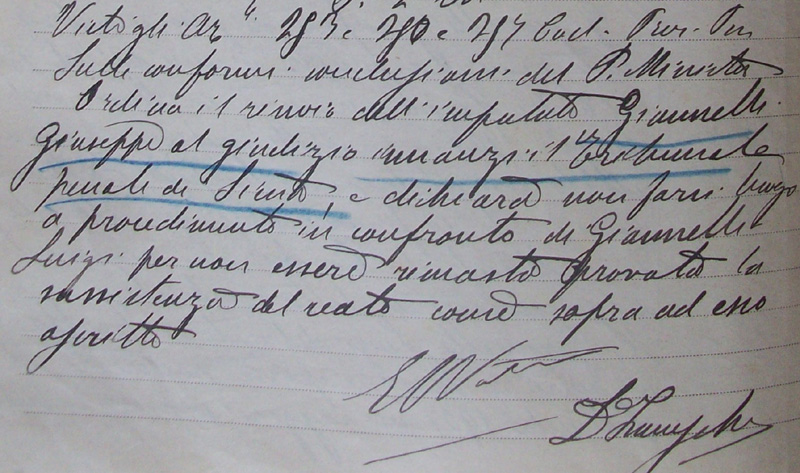 Visti gli Art.i 253, 250 e 257 Cod. Proc. Pen
Sulle conformi conclusioni del P. Ministero
Ordina il rinvio dell'imputato Giannelli
Giuseppe al giudizio innanzi il Tribunale
penale di Siena, e dichiara non farsi luogo
a procedimento in confronto di Giannelli
Luigi per non essere rimasta provata la
sussistenza del reato come sopra ad esso
ascritto